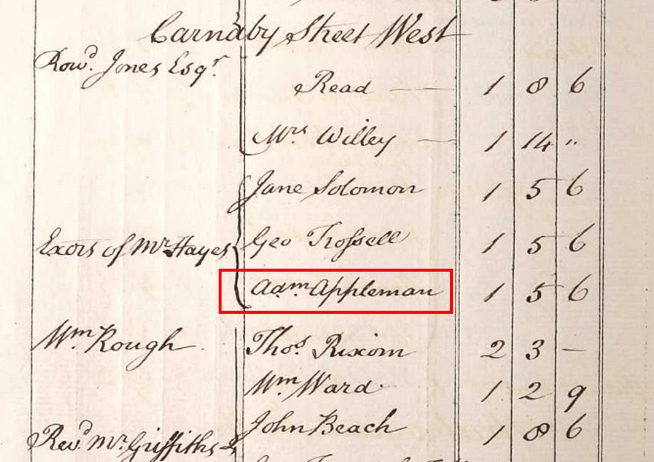 Carnaby Street West
Rowd. Jones Esqr.
Read — 1 8 6
Mrs Willey — 1 14 "
Jane Solomon 1 5 6
Exors of Mr Hayes Geo Trossell 1 5 6
Adm Appleman 1 5 6
Wm Rough Thos. Rixom 2 3 —
Wm Ward 1 2 9
Revd. Mr. Griffiths John Beach 1 8 6